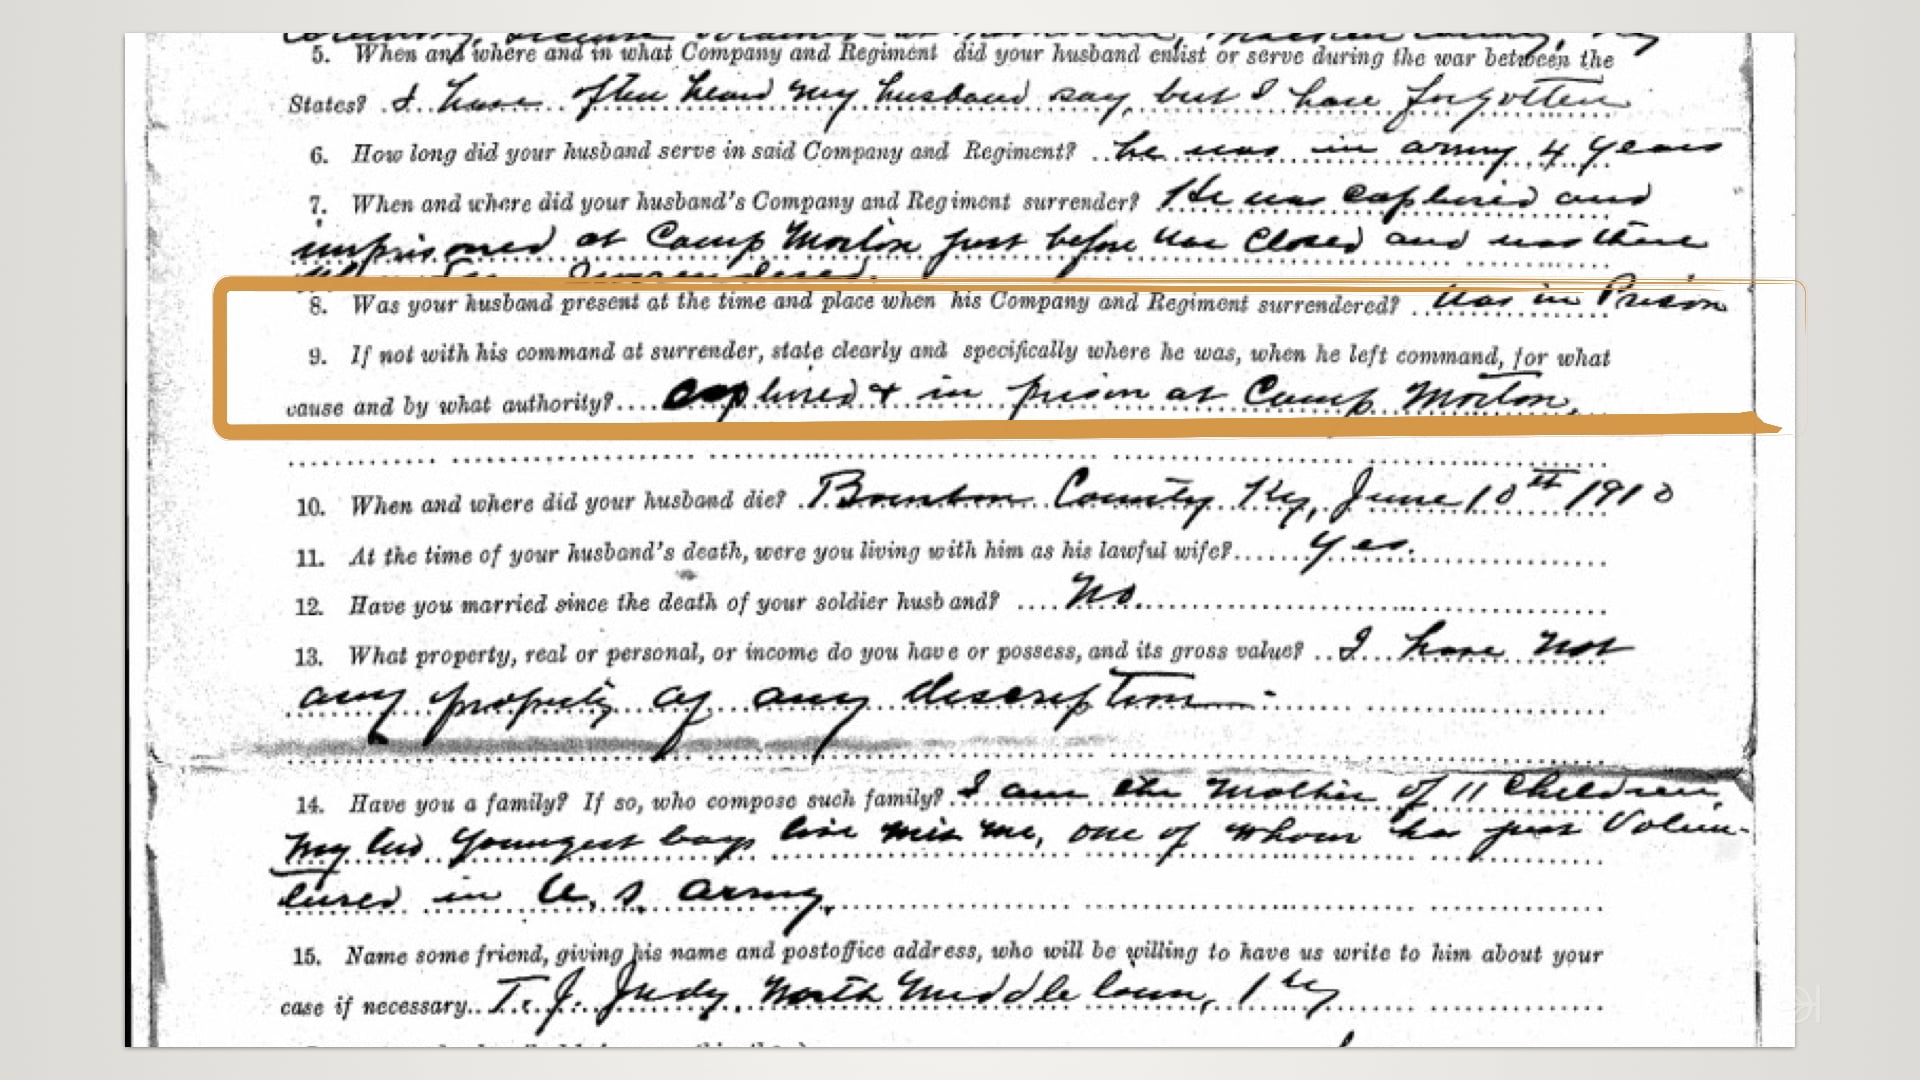 5. When and where and in what Company and Regiment did your husband enlist or serve during the war between the
States? I have often heard my husband say, but I have forgotten
6. How long did your husband serve in said Company and Regiment? he was in army 4 years
7. When and where did your husband's Company and Regiment surrender? He was captured and
imprisoned at Camp Morton just before war closed and was there
8. Was your husband present at the time and place when his Company and Regiment surrendered? was in Prison
9. If not with his command at surrender, state clearly and specifically where he was, when he left command, for what
cause and by what authority? captured + in prison at Camp Morton.
10. When and where did your husband die? Bourbon County Ky, June 10th 1910
11. At the time of your husband's death, were you living with him as his lawful wife? Yes.
12. Have you married since the death of your soldier husband? No.
13. What property, real or personal, or income do you have or possess, and its gross value? I have not
any property of any description.
14. Have you a family? If so, who compose such family? I am the Mother of 11 Children,
My two youngest boys live with me, one of whom has just Volun-
teered in U. S. Army.
15. Name some friend, giving his name and postoffice address, who will be willing to have us write to him about your
case if necessary. T. J. Judy, North Middletown, Ky